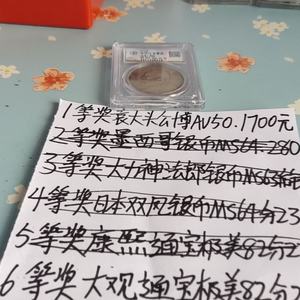 1等奖袁大头公博AU50.1700元
2等奖墨西哥银币MS64.280
3等奖大力神法郎银币MS63
4等奖日本双凤银币MS64分23
5等奖康熙通宝极美82分2
6等奖大观通宝极美82分